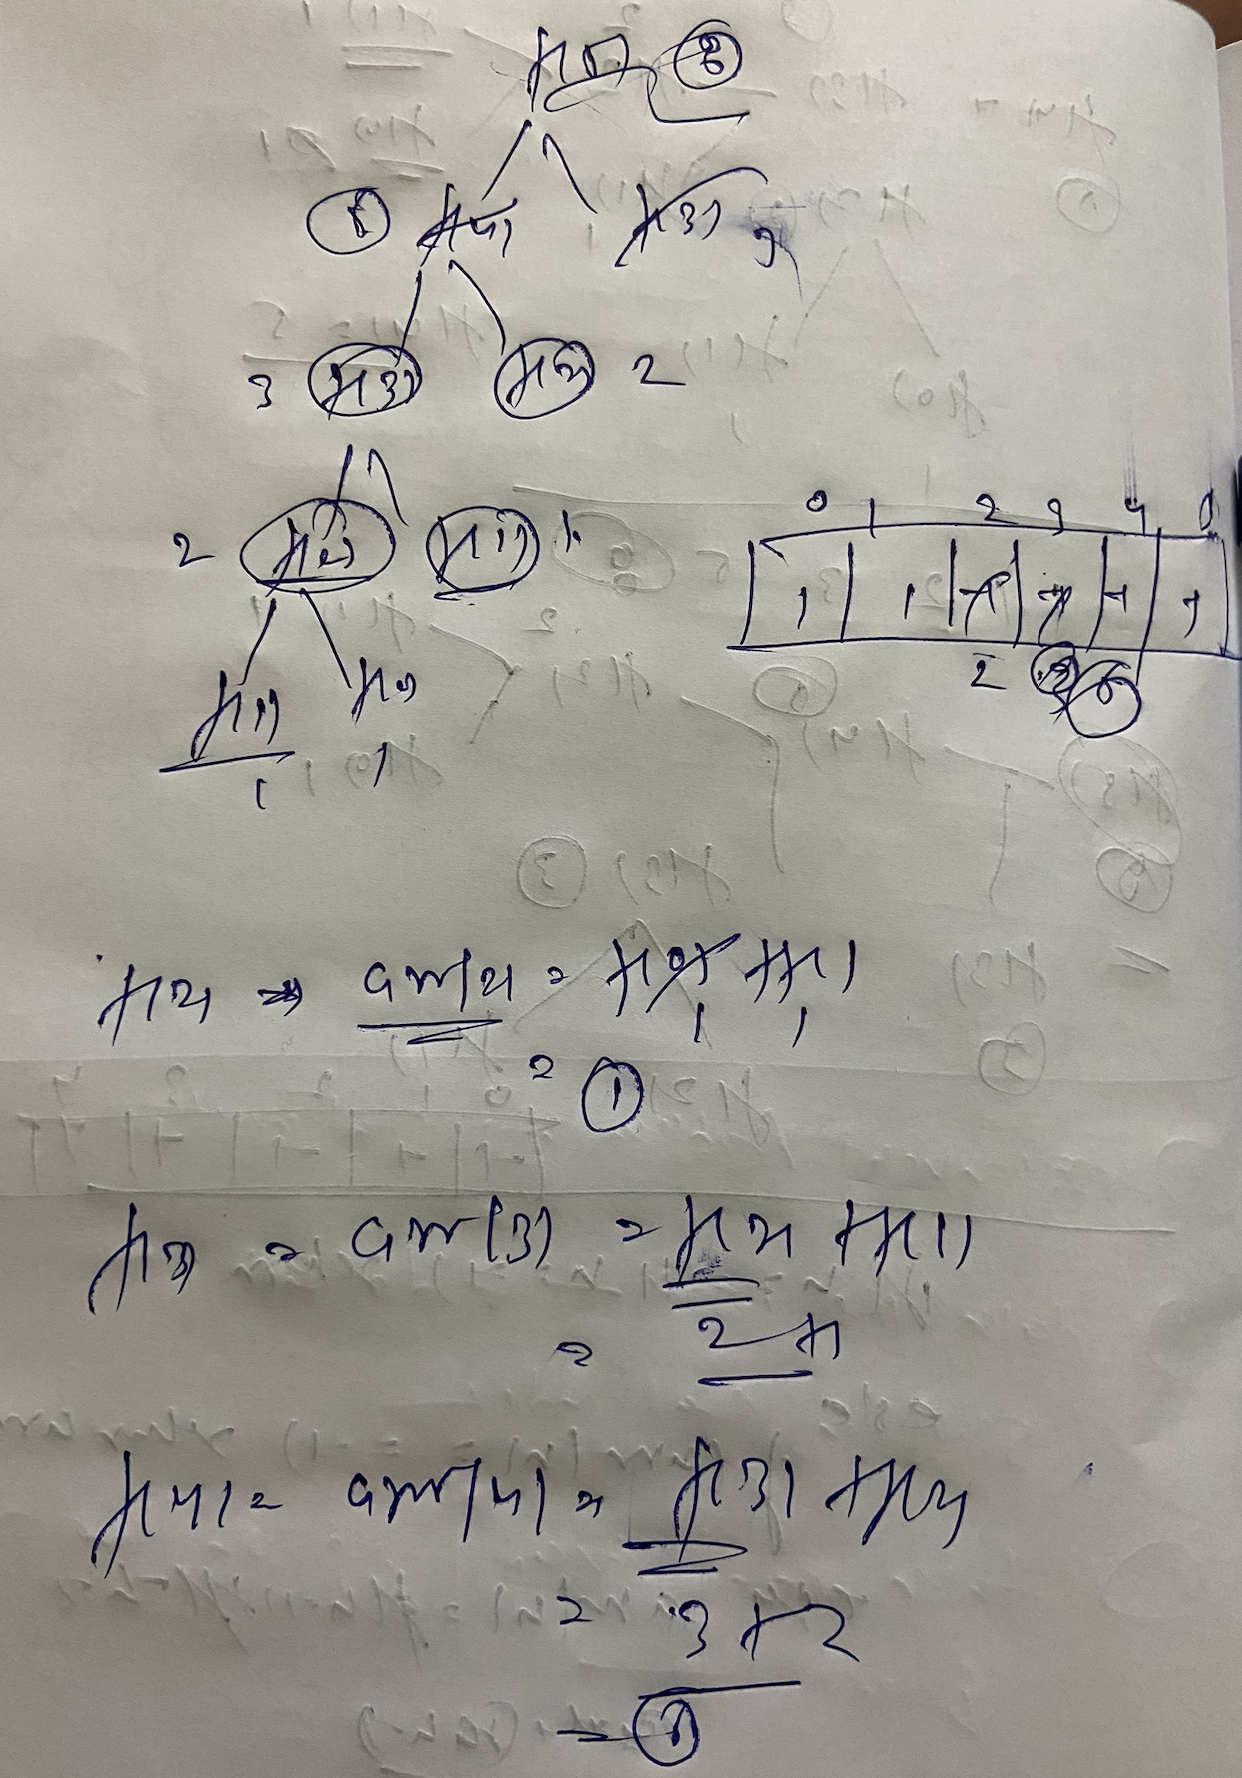 f(5) 8
5 f(4) f(3) 3
3 f(3) f(2) 2
2 f(2) f(1) 1
f(1) f(0)
1 1
0 1 2 3 4 5
1 1 -1 -1 -1 -1
2 3 5
f(2) ⇒ arr[2] = f(0) + f(1)
1 1
= 1
f(3) = arr[3] = f(2) + f(1)
= 2 + 1
f(4) = arr[4] = f(3) + f(2)
= 3 + 2
= 5